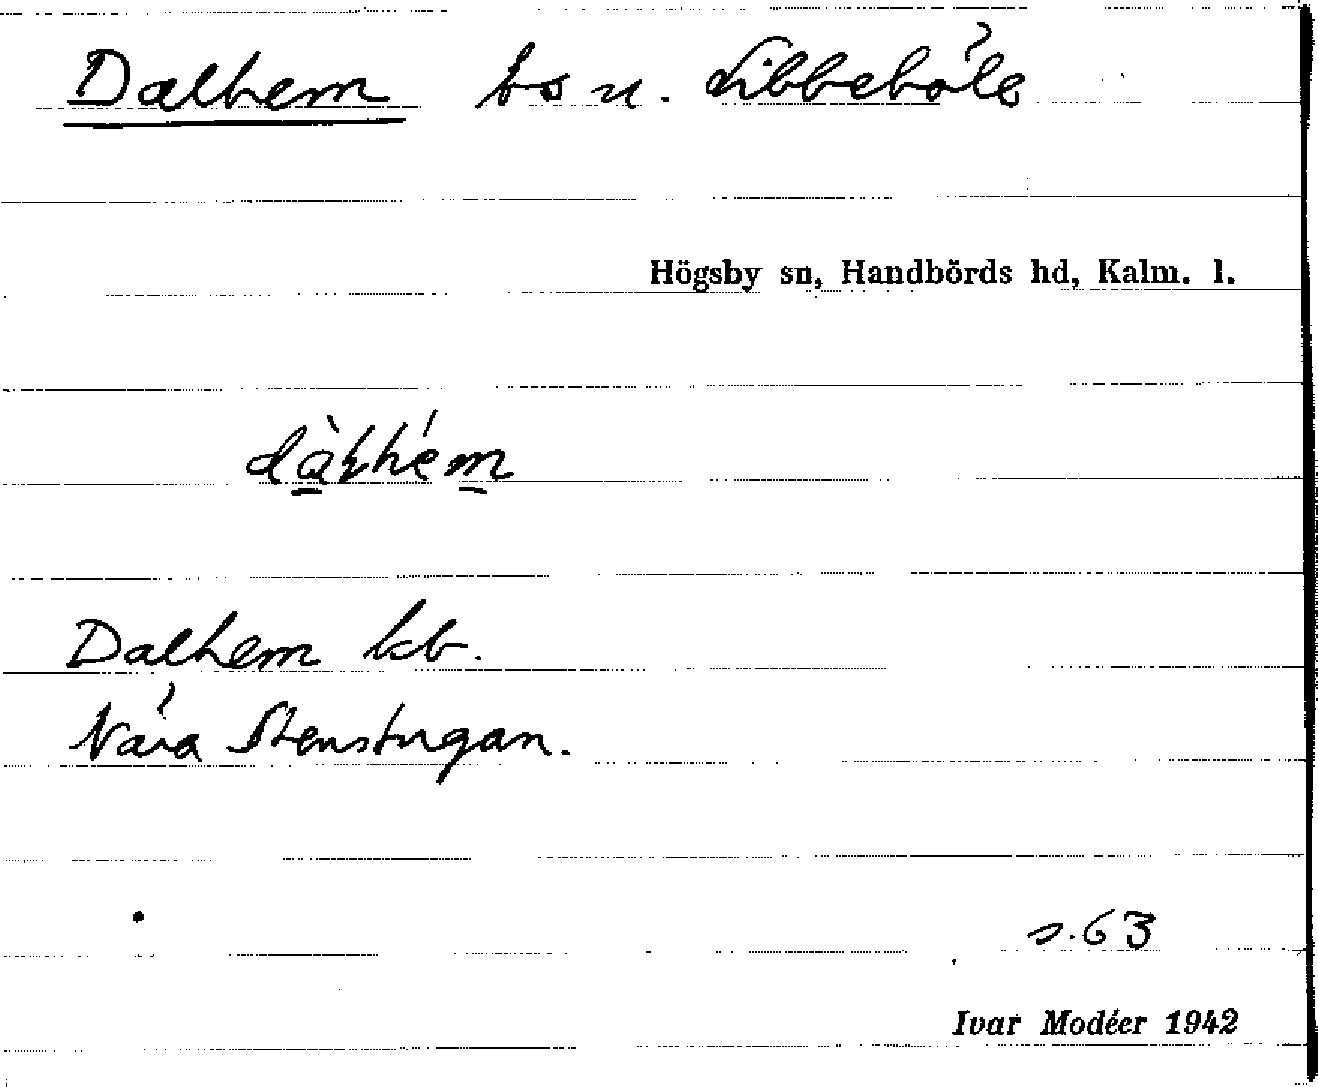 Dalhem bs u. Libbehåle
Högsby sn, Handbörds hd, Kalm. l.
Dalhem kb.
Nära Stenstugan.
s. 63
Ivar Modéer 1942